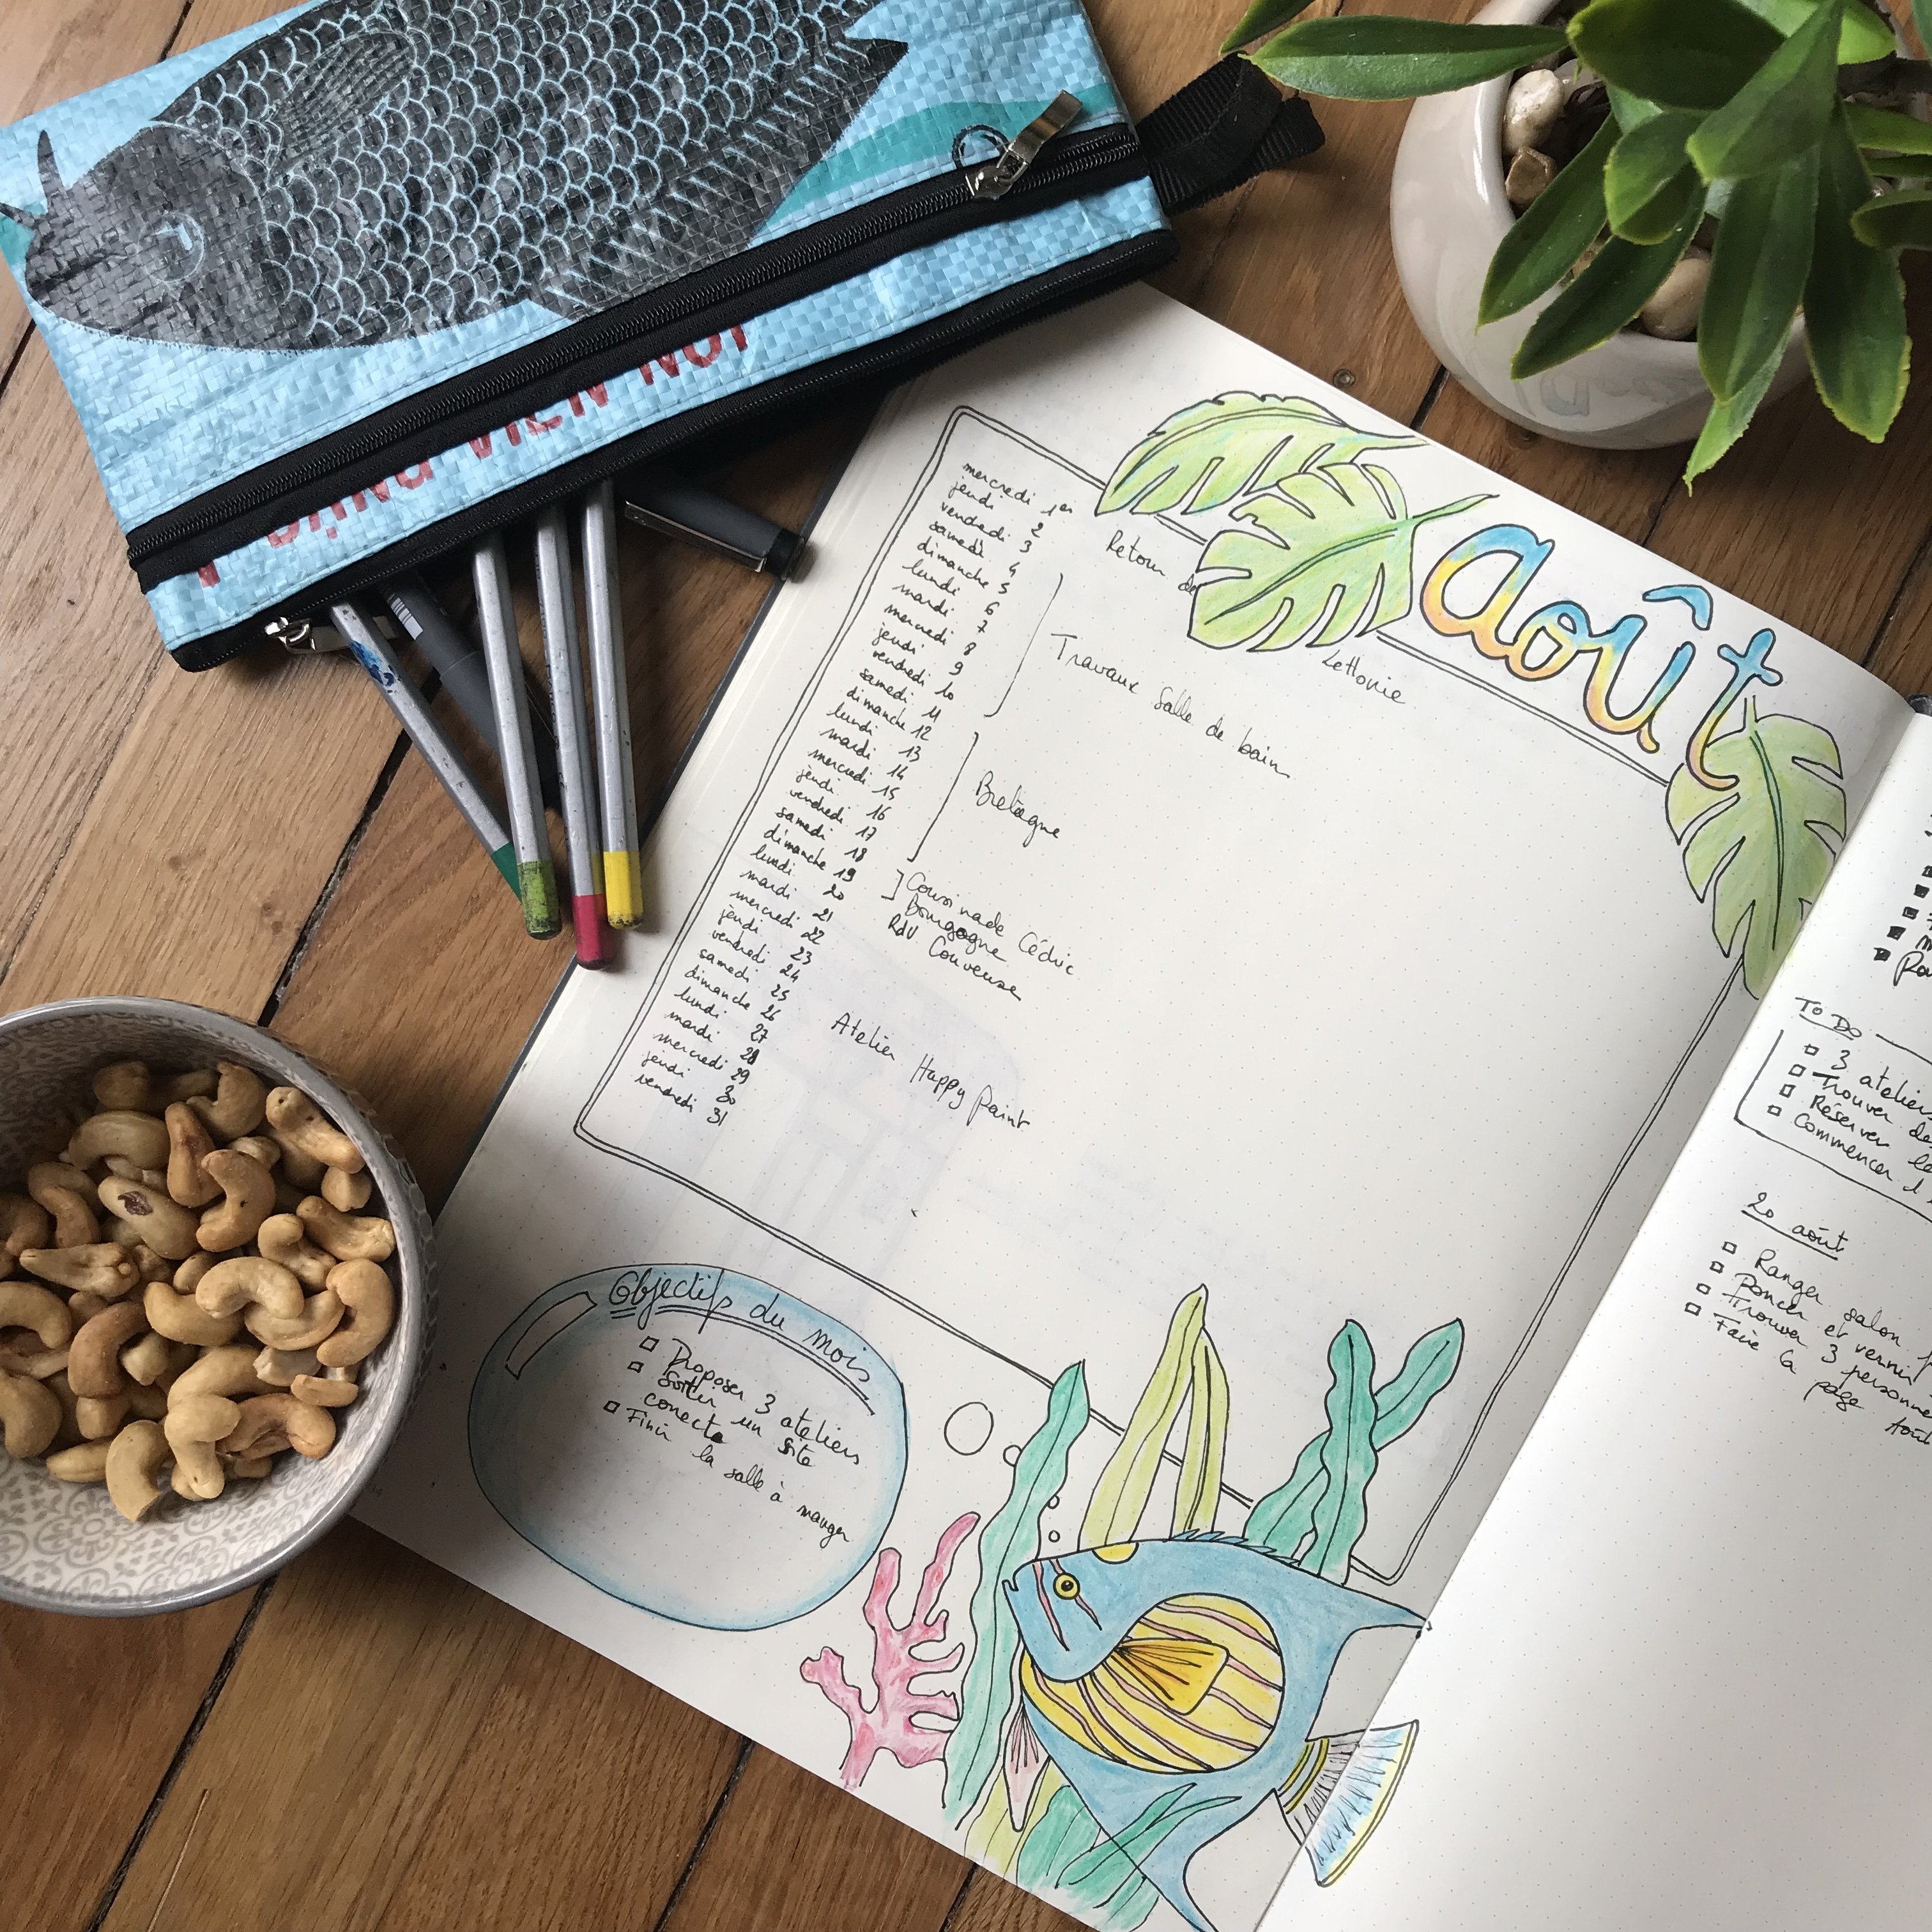 août
mercredi 1er
jeudi 2
vendredi 3
samedi 4
dimanche 5
lundi 6
mardi 7
mercredi 8
jeudi 9
vendredi 10
samedi 11
dimanche 12
lundi 13
mardi 14
mercredi 15
jeudi 16
vendredi 17
samedi 18
dimanche 19
lundi 20
mardi 21
mercredi 22
jeudi 23
vendredi 24
samedi 25
dimanche 26
lundi 27
mardi 28
mercredi 29
jeudi 30
vendredi 31
Retour de Lettonie
Travaux Salle de bain
Bretagne
Cousinade Cédric
Bourgogne
RdV Couveuse
Atelier Happy Paint
Objectifs du mois
Proposer 3 ateliers
Sortir un site
conecte
Finir la salle à manger
To Do
3 ateliers
Trouver de
Réserver le
Commencer d
20 août
Ranger salon
Poncer et verni
Trouver 3 personne
Faire la page Août